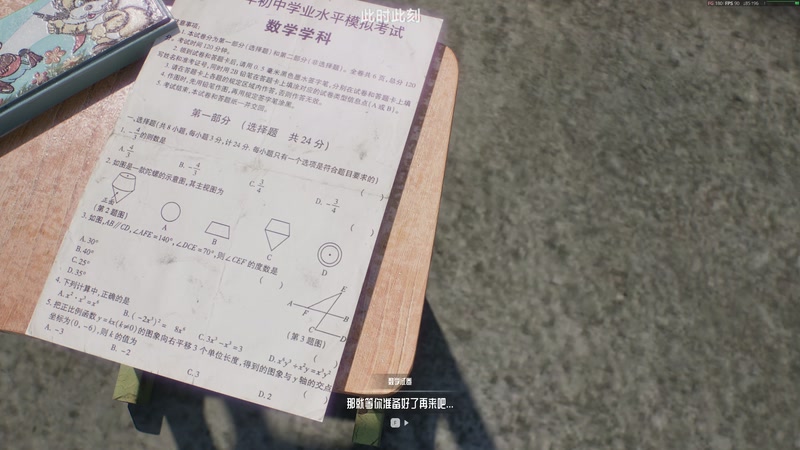 此时此刻
年初中学业水平模拟考试
数学学科
意事项:
1. 本试卷分为第一部分(选择题)和第二部分(非选择题)。全卷共6页,总分120
分。考试时间120分钟。
2. 领到试卷和答题卡后,请用0.5毫米黑色墨水签字笔,分别在试卷和答题卡上填
写姓名和准考证号,同时用2B铅笔在答题卡上填涂对应的试卷类型信息点(A或B)。
3. 请在答题卡上各题的规定区域内作答,否则作答无效。
4. 作图时,先用铅笔作图,再用规定签字笔描黑。
5. 考试结束,本试卷和答题纸一并交回。
第一部分 (选择题 共24分)
一、选择题(共8小题,每小题3分,计24分。每小题只有一个选项是符合题目要求的)
1. -4/3的倒数是 ( )
A. 4/3 B. -4/3 C. 3/4 D. -3/4
2. 如图是一款陀螺的示意图,其主视图为 ( )
正面
(第2题图)
A B C D
3. 如图,AB∥CD,∠AFE=140°,∠DCE=70°,则∠CEF的度数是 ( )
A. 30°
B. 40°
C. 25°
D. 35°
E
A F B
C D
(第3题图)
4. 下列计算中,正确的是 ( )
B. (-2x³)²= 8x⁶ C. 3x²-x²=3
5. 把正比例函数y=kx(k≠0)的图象向右平移3个单位长度,得到的图象与y轴的交点
坐标为(0,-6),则k的值为 ( )
A. -3 B. -2 C. 3 D. 2
数学试卷
那就等你准备好了再来吧...